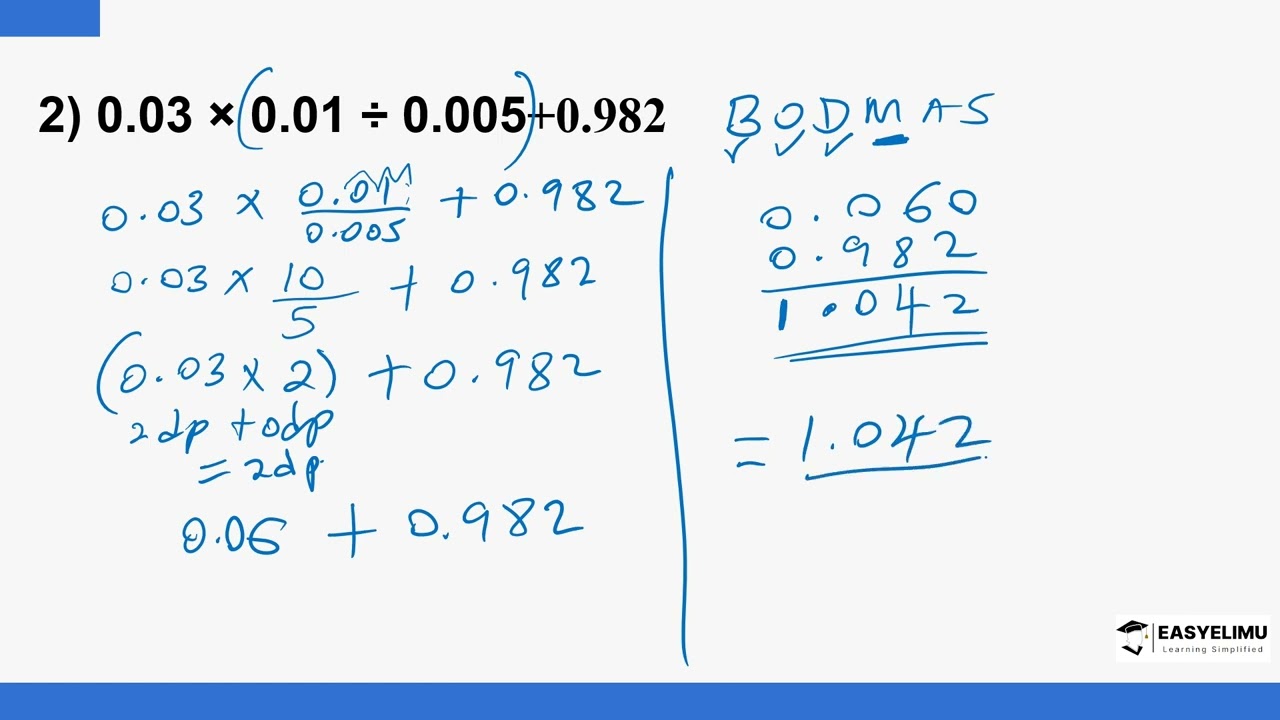 2) 0.03 × (0.01 ÷ 0.005)+0.982
0.03 × 0.01/0.005 + 0.982
0.03 × 10/5 + 0.982
(0.03 × 2) + 0.982
2dp + 0dp
= 2dp.
0.06 + 0.982
BODMAS
0.060
0.982
1.042
= 1.042
EASYELIMU
Learning Simplified